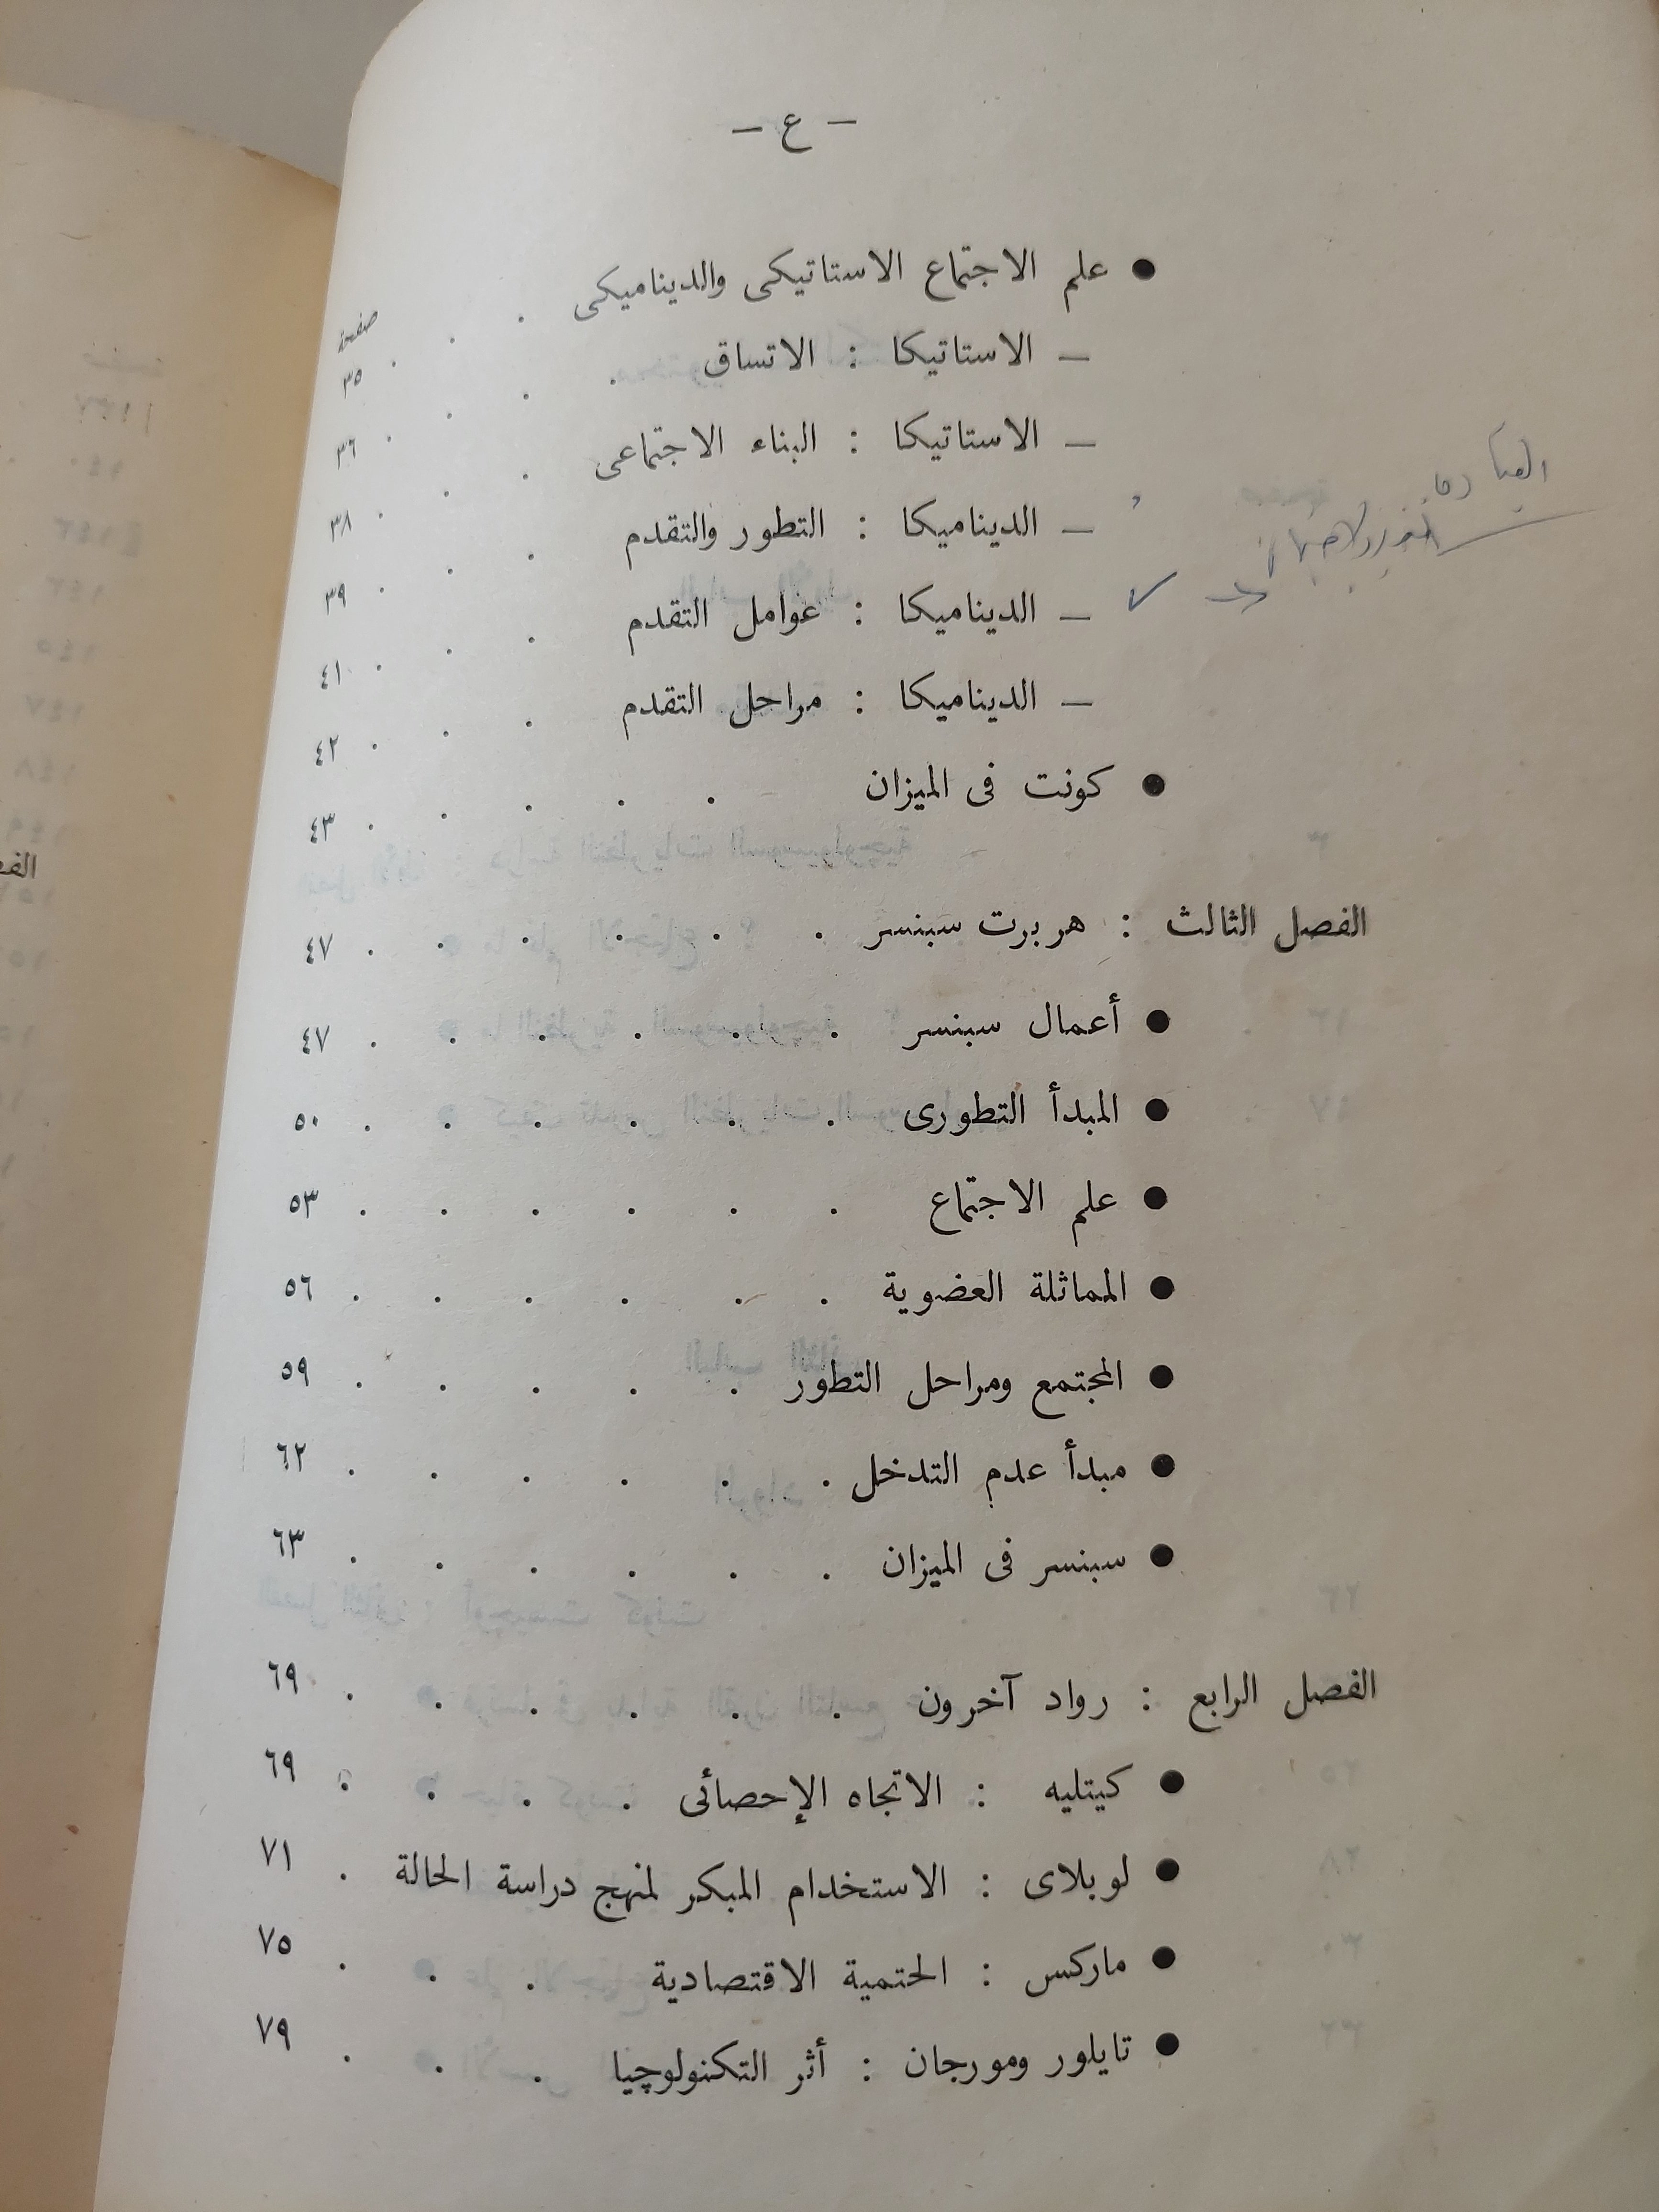 - ع -
صفحة
● علم الاجتماع الاستاتيكى والديناميكى . . . ٣٥
— الاستاتيكا : الاتساق . . . . ٣٦
— الاستاتيكا : البناء الاجتماعى . . . ٣٨
— الديناميكا : التطور والتقدم . . . ٣٩
— الديناميكا : عوامل التقدم . . . ٤١
— الديناميكا : مراحل التقدم . . . ٤٢
● كونت فى الميزان . . . . . ٤٣
الفصل الثالث : هربرت سبنسر . . . . . . ٤٧
● أعمال سبنسر . . . . . . ٤٧
● المبدأ التطورى . . . . . . ٥٠
● علم الاجتماع . . . . . . ٥٣
● المماثلة العضوية . . . . . . ٥٦
● المجتمع ومراحل التطور . . . . . ٥٩
● مبدأ عدم التدخل . . . . . . ٦٢
● سبنسر فى الميزان . . . . . . ٦٣
الفصل الرابع : رواد آخرون . . . . . . ٦٩
● كيتليه : الاتجاه الإحصائى . . . . ٦٩
● لوبلاى : الاستخدام المبكر لمنهج دراسة الحالة . ٧١
● ماركس : الحتمية الاقتصادية . . . ٧٥
● تايلور ومورجان : أثر التكنولوچيا . . . ٧٩